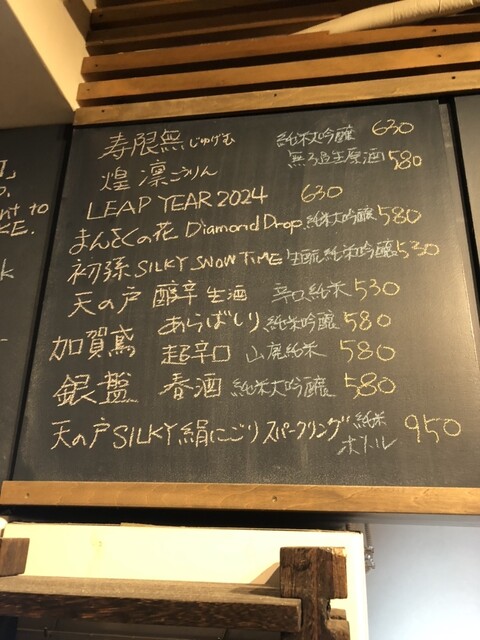 寿限無 じゅげむ 純米大吟醸 630
煌凛 こうりん 無ろ過生原酒 580
LEAP YEAR 2024 630
まんさくの花 Diamond Drop 純米大吟醸 580
初孫 SILKY SNOW TIME 生酛純米吟醸 530
天の戸 醇辛 生酒 辛口純米 530
あらばしり 純米吟醸 580
加賀鳶 超辛口 山廃純米 580
銀盤 春酒 純米大吟醸 580
天の戸 SILKY 絹にごり スパークリング 純米 ボトル 950
nt to
KE.
k